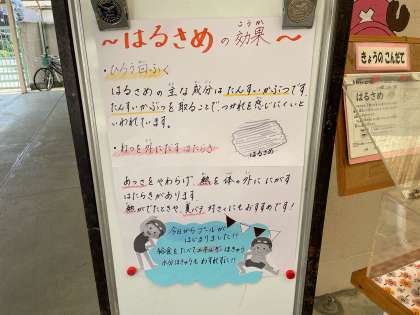 ～はるさめの効果～
こうか
・ひろう回ふく
はるさめの主な成分はたんすいかぶつです
たんすいかぶつを取ることで、つかれを感じにくいと
いわれています。
はるさめ
・ねつを外にだすはたらき
あつさをやわらげ、熱を体の外ににがす
はたらきがあります。
熱がでたときや、夏バテ対さくにもおすすめです！
今日からプールが
はじまりました！！
給食をたべて
水分ほきゅうもわすれずに！！
きょうのこんだて
はるさめ